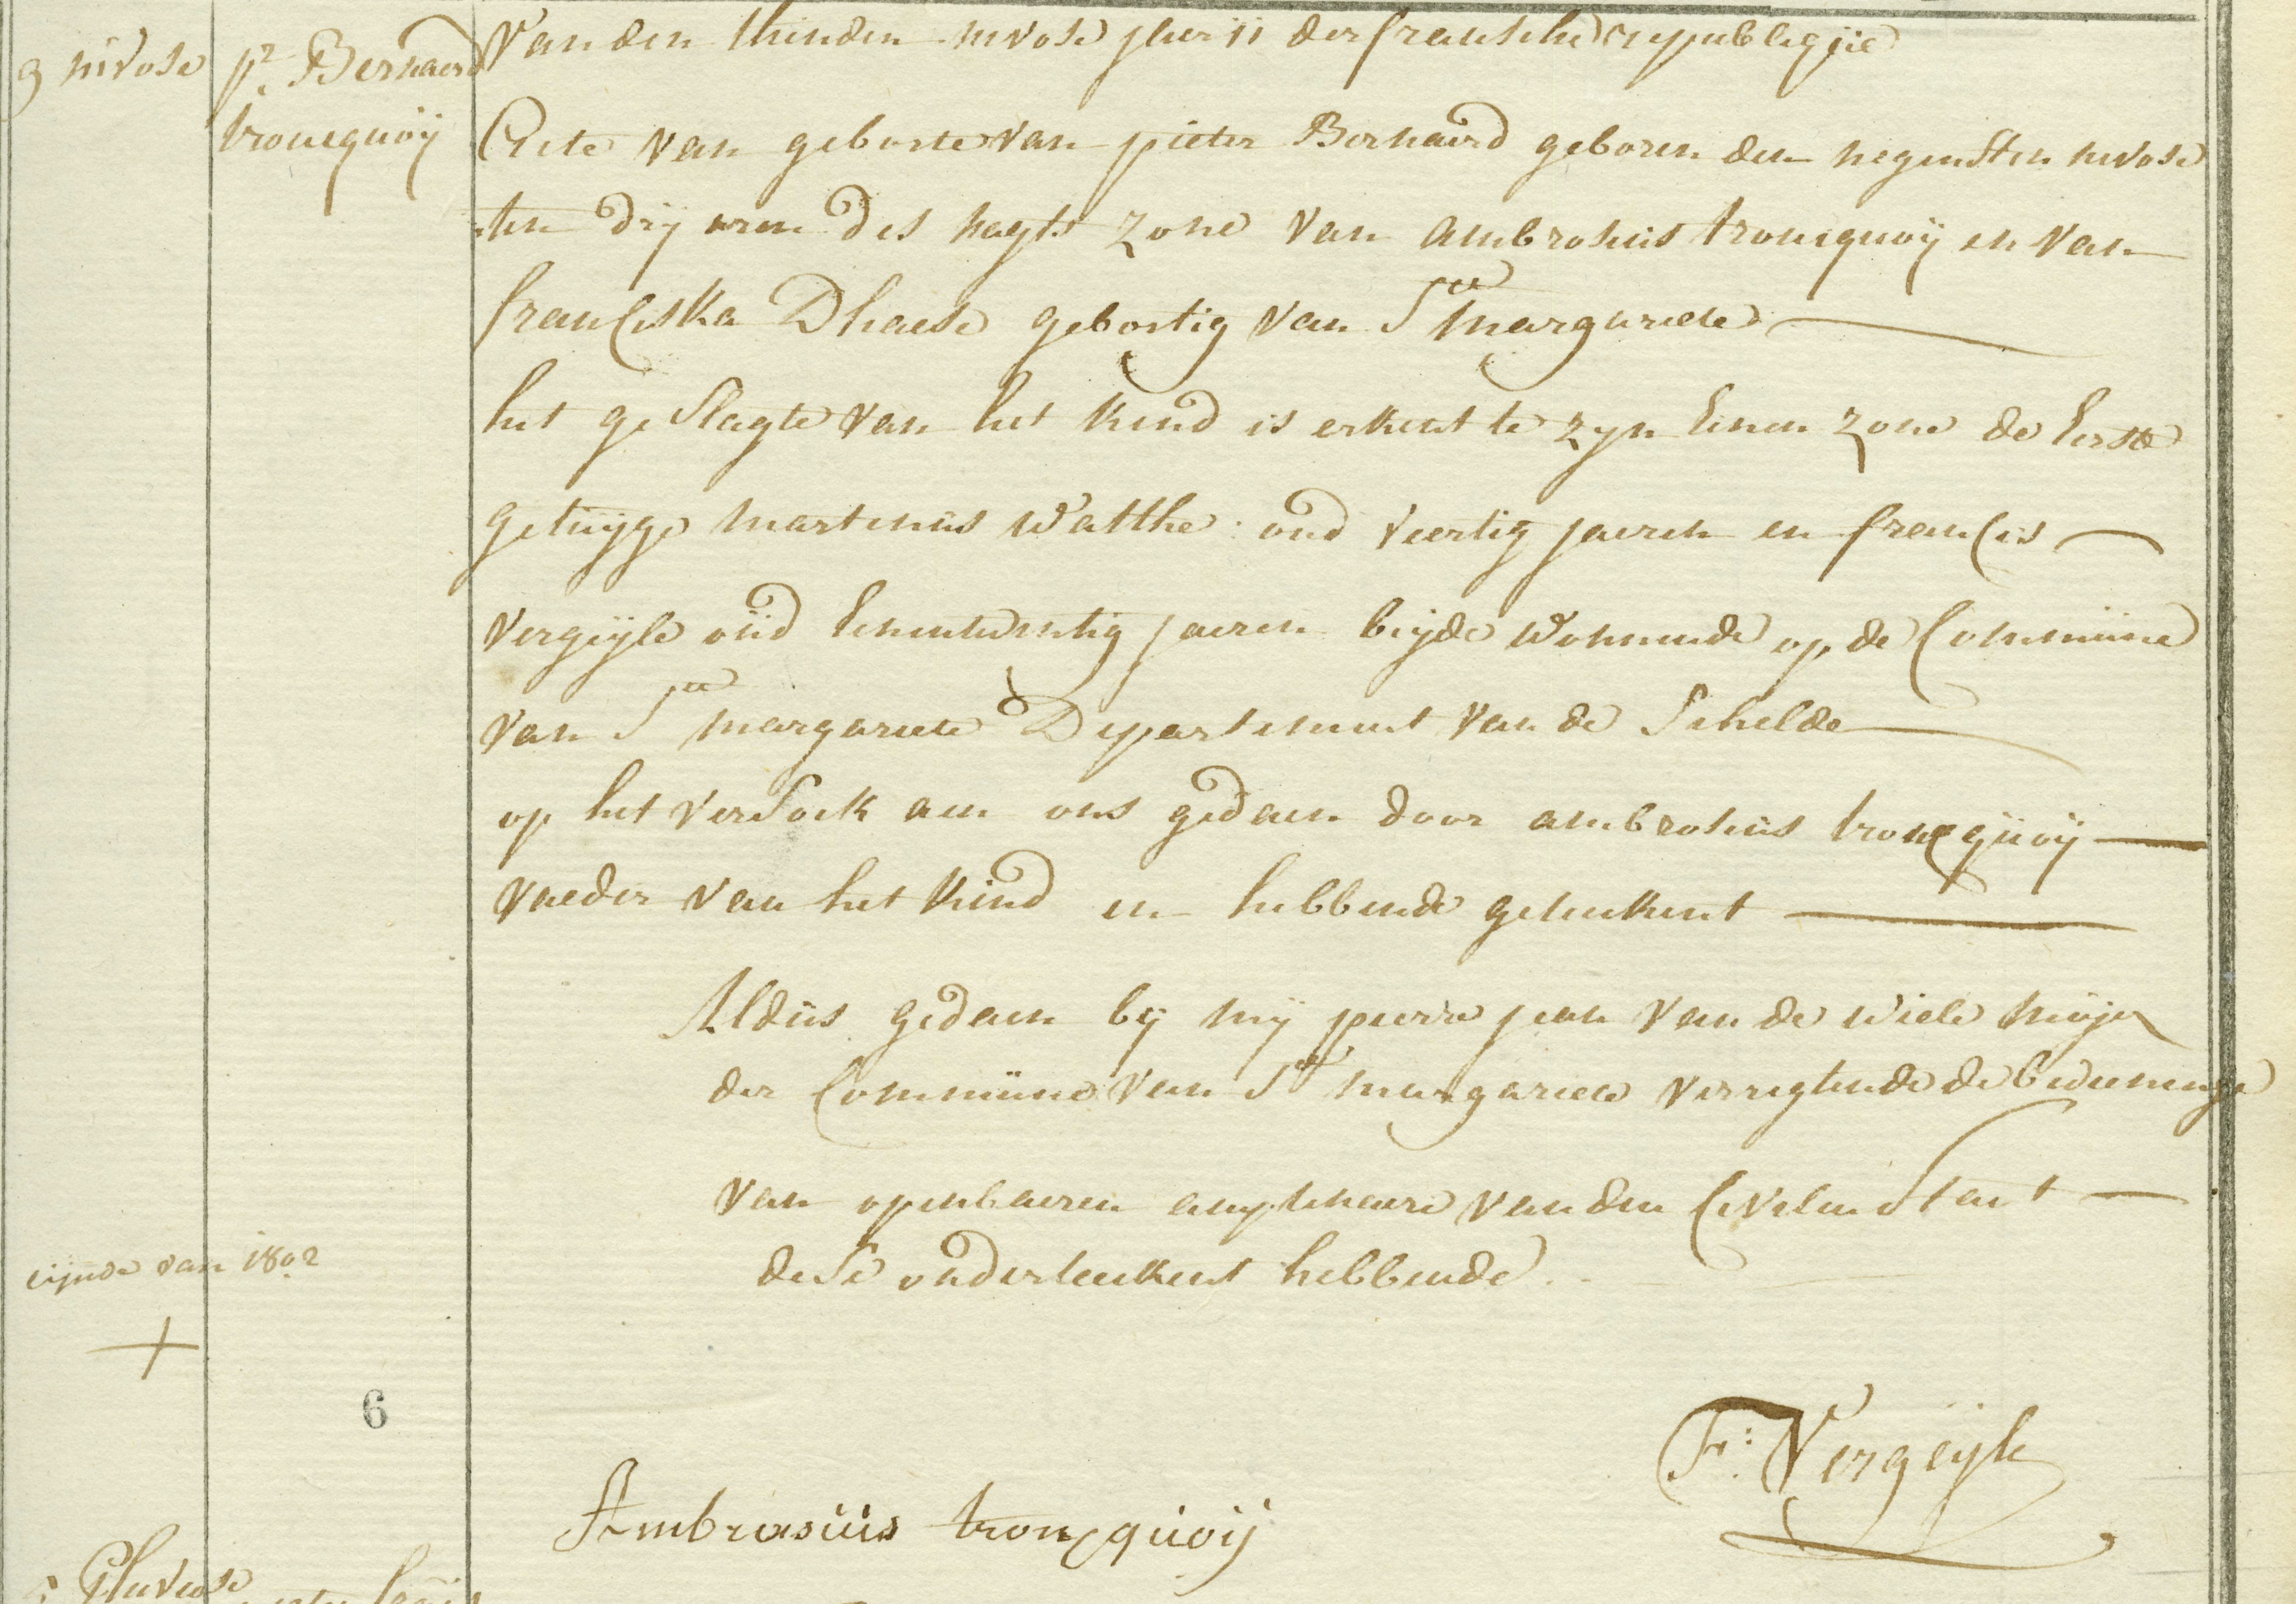 9 nivose
pr. Bernaerd
troncquoÿ
Van den thinden nivose jaer 11 der fransche republeque
Acte van geborte van pieter Bernaerd geboren den negensten nivose
ten drij uren des nagts zone van ambrosius troncquoÿ en van
franciska Dhaese gebortig van Ste margariete
het geslagte van het kind is erkent te zyn Eenen zone de Eerste
getuÿge martinus Watthe : oud veertig jaeren en francis
vergeÿle oud Eenentwintig jaeren beÿde woonende op de Commune
van Ste margariete Departement van de Schelde
op het versoek aen ons gedaen door ambrosius troncquoÿ
vaeder van het kind en hebbende geteekent
Aldus gedaen by mÿ pieere jean van de wiele maÿer
der Commune van Ste margariete verregtende de bedieninge
van openbaeren amptenaere van den Civielen Staet
dese onderteekent hebbende .
eijnde van 1802
+
6
Fr: Vergeÿle
Ambrosius troncquoij
Pluviose